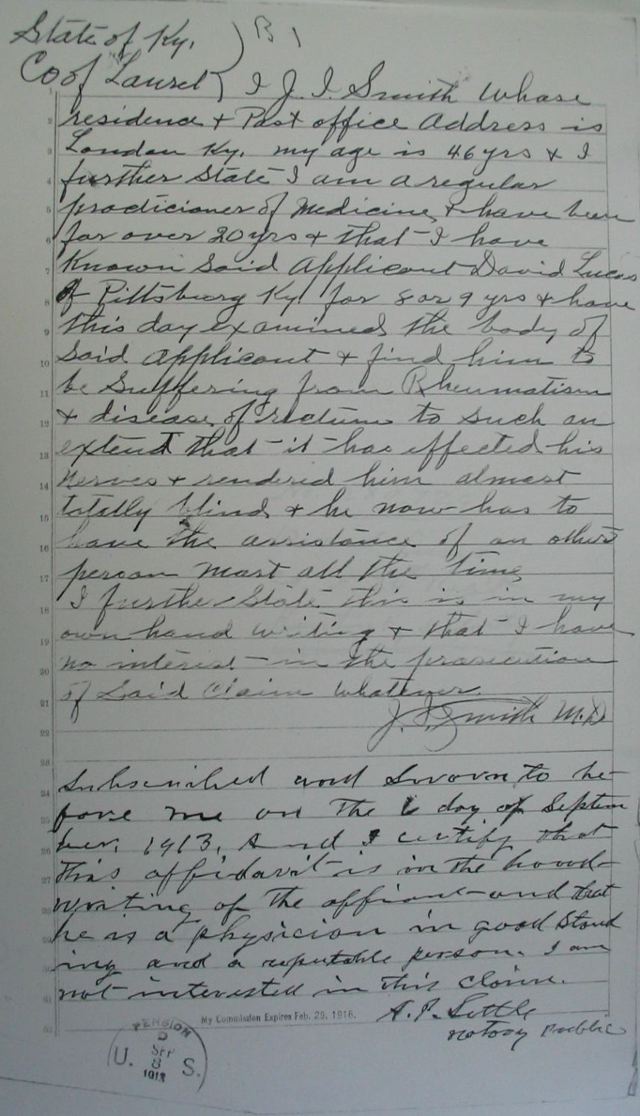 State of Ky. ) B 1
Co of Laurel } I J. I. Smith whose
residence + Post office Address is
London Ky. my age is 46 yrs + I
further State I am a regular
practicioner of Medicine, + have been
for over 20 yrs + that I have
Known Said Applicant David Lucas
of Pittsburg Ky for 8 or 9 yrs + have
this day examined the body of
Said Applicant + find him to
be Suffering from Rheumatism
+ disease of rectum to such an
extend that it has effected his
nerves + rendered him almost
totally blind + he now has to
have the assistance of an other
person most all the time,
I further State this is in my
own hand writing + that I have
no interest in the prosecution
of Said Claim whatever.
J. I. Smith M.D
Subscribed and Sworn to be-
fore me on the 6 day of Septem
ber, 1913, And I certify that
this affidavit is in the hand-
writing of the affiant and that
he is a physician in good Stand
ing and a reputable person. I am
not interested in this claim.
My Commission Expires Feb. 29, 1916. A. P. Settle
notary public
PENSION
U. SEP S.
8
1913